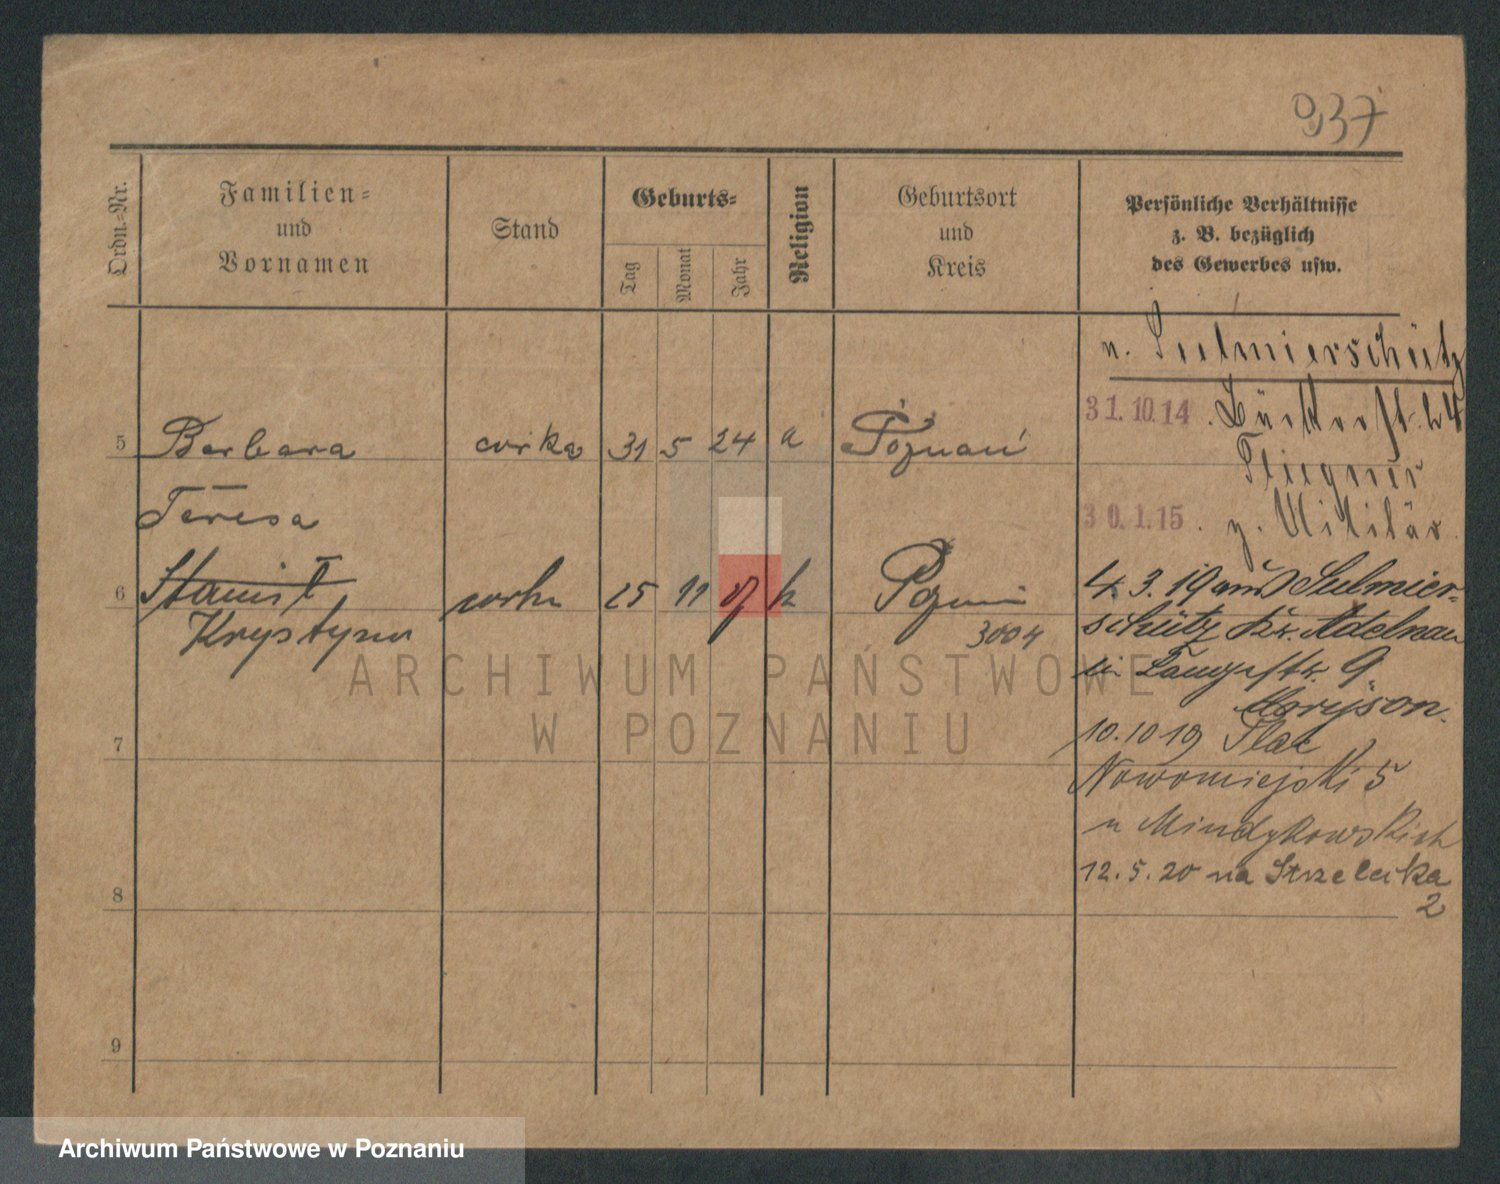 937
Ordn.-Nr.
Familien-
und
Vornamen
Stand
Geburts-
Tag
Monat
Jahr
Religion
Geburtsort
und
Kreis
Persönliche Verhältnisse
z. B. bezüglich
des Gewerbes usw.
n. Sulmierschütz
31.10.14
5 Barbara córka 31 5 24 a Poznań
Teresa
30.1.15. z. Militär
6 Stanisł córka 25 11 k Poznań
Krystyna
3004
4.3.19 aus Sulmier-
schütz Kr. Adelnau
Langestr. 9
10.10 19 Plac
Nowomiejski 5
u Mindykowskich
12.5.20 na Strzelecka
2
7
8
9
ARCHIWUM PAŃSTWOWE
W POZNANIU
Archiwum Państwowe w Poznaniu